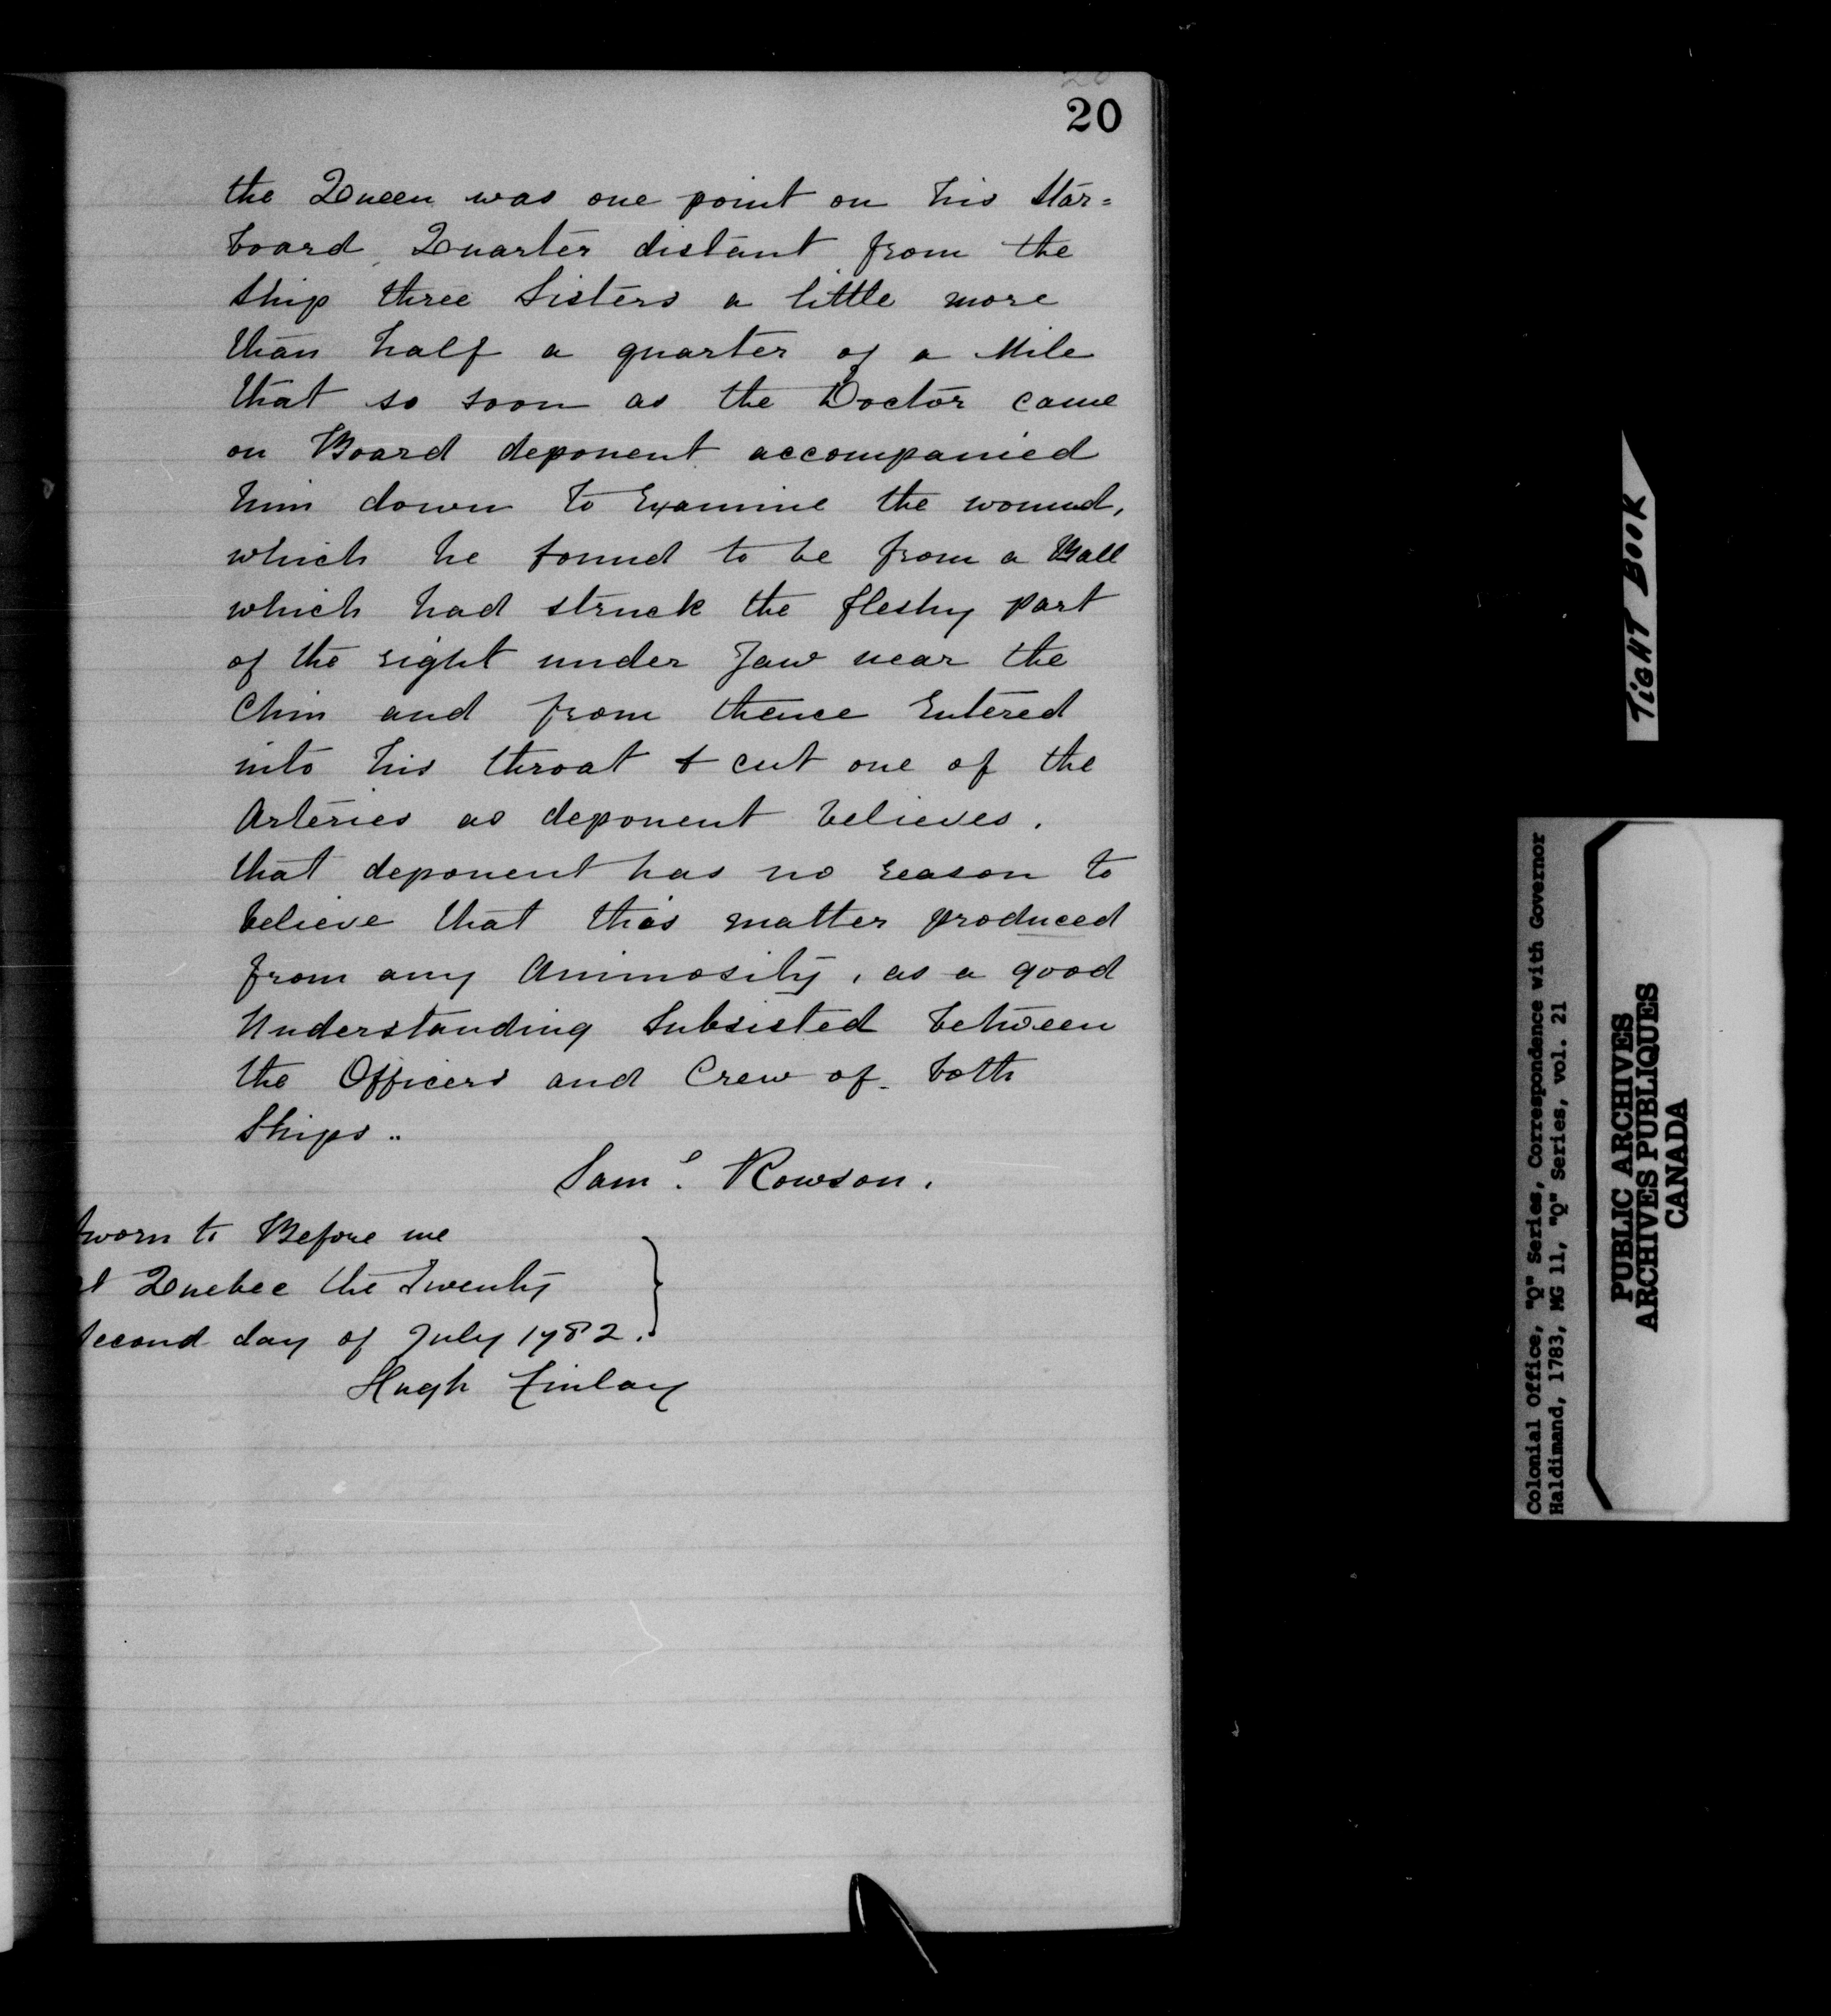 20
the Queen was one point on his Star=
board Quarter distant from the
Ship three Sisters a little more
than half a quarter of a Mile
that so soon as the Doctor came
on Board deponent accompanied
him down to Examine the wound,
which he found to be from a Ball
which had struck the fleshy part
of the right under Jaw near the
Chin and from thence Entered
into his throat & cut one of the
Arteries as deponent believes.
that deponent has no reason to
believe that this matter produced
from any Animosity, as a good
Understanding Subsisted between
the Officers and Crew of both
Ships..
Saml. Rowson.
Sworn to Before me
at Quebec the Twenty
Second day of July 1782.
Hugh Finlay
TIGHT BOOK
Colonial Office, "Q" Series, Correspondence with Governor
Haldimand, 1783, MG 11, "Q" Series, vol. 21
PUBLIC ARCHIVES
ARCHIVES PUBLIQUES
CANADA